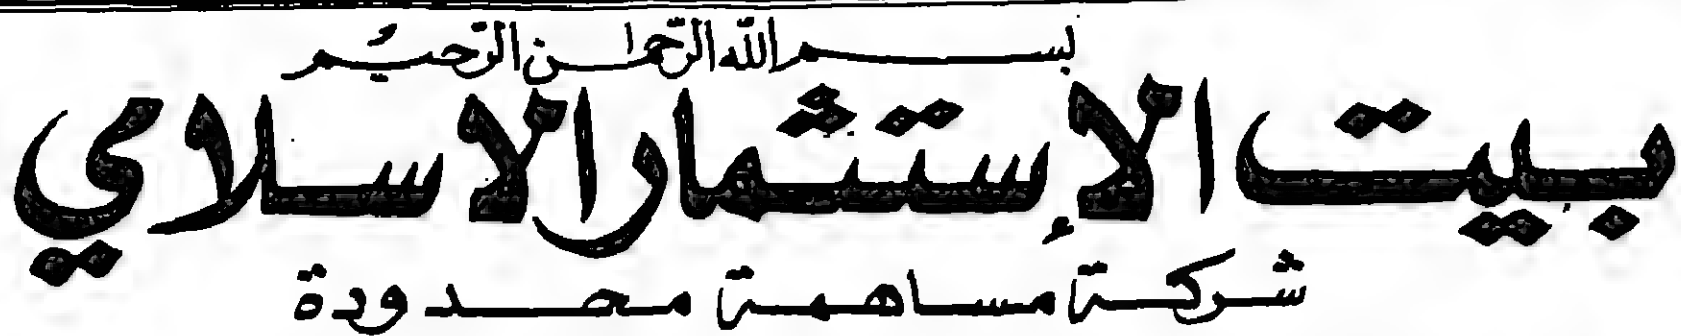 بسم الله الرحمن الرحيم
بيت الإستثمار الاسلامي
شركة مساهمة محدودة